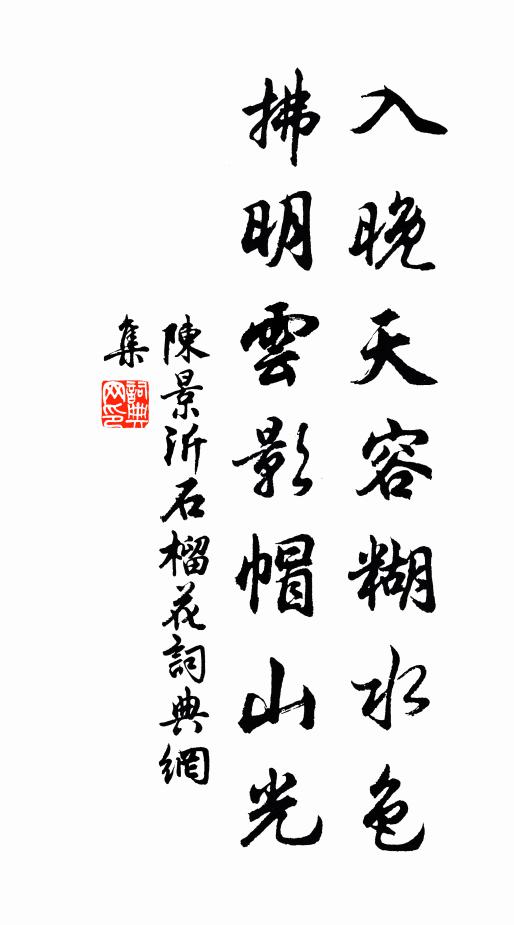 入晚天容糊水色
拂明雲影帽山光
陳景沂石榴花詞典網
集
詞典网印